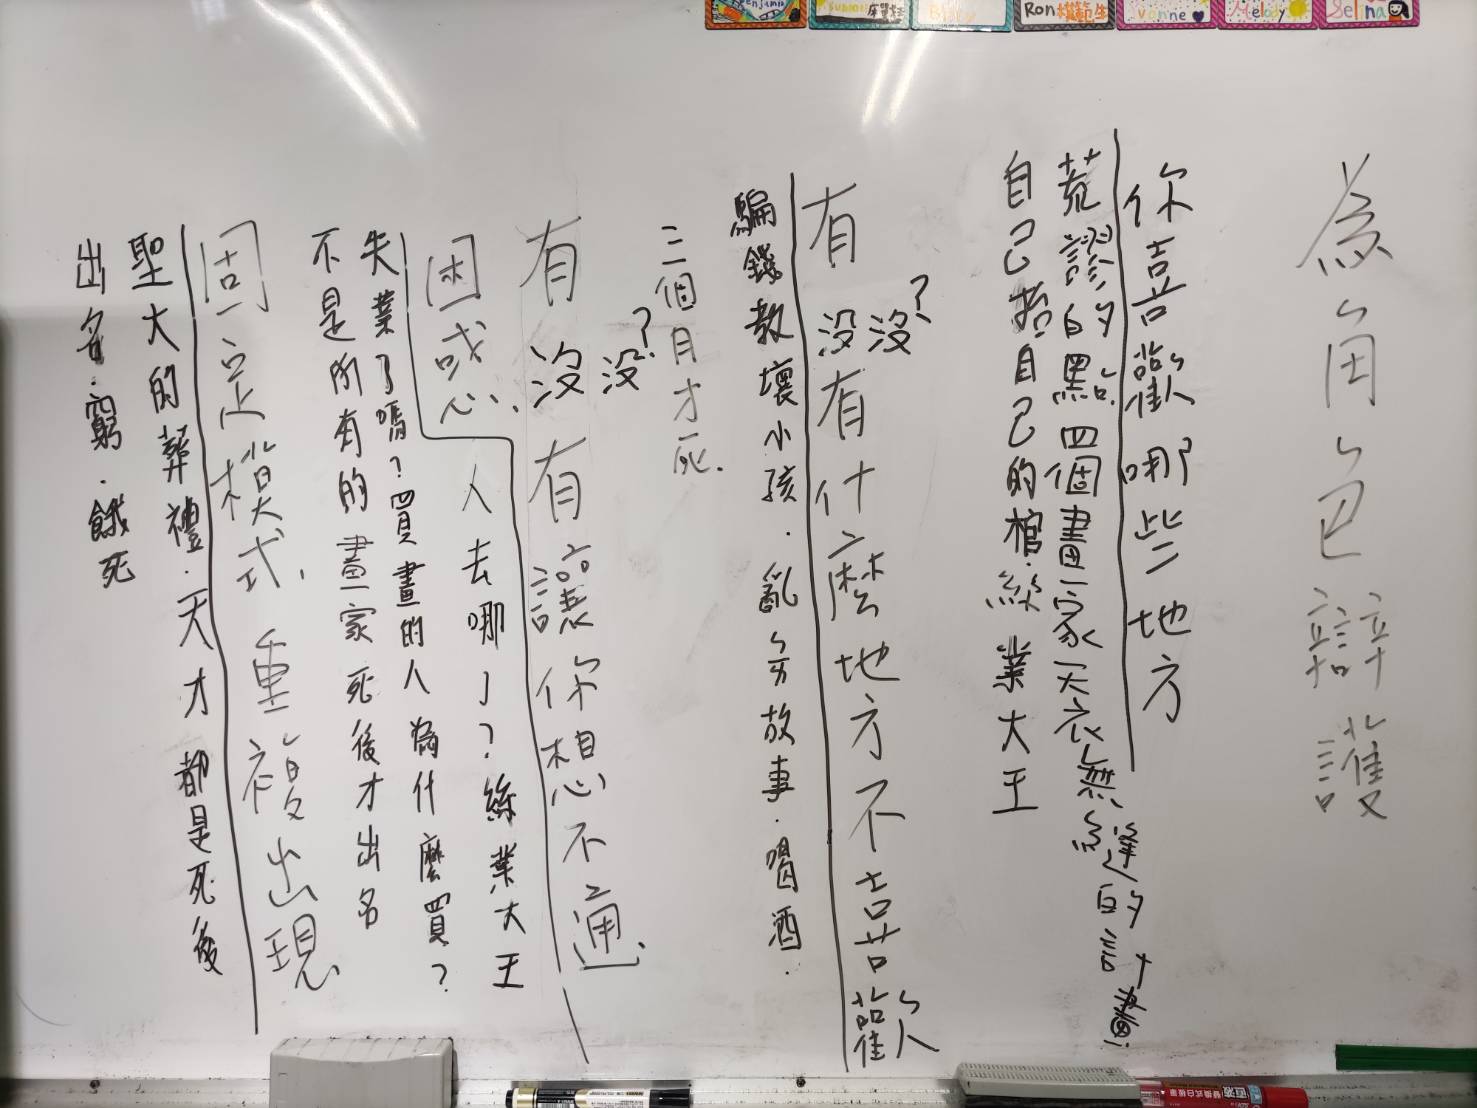 Benjamin
Ron模範生
Yvonne
Melody
Selina
為角色辯護
你喜歡哪些地方
荒謬的點.四個畫家天衣無縫的計畫!
自己抬自己的棺.絲業大王
有沒有什麼地方不喜歡
沒?
騙錢教壞小孩.亂分故事.喝酒.
三個月才死.
有沒有讓你想不通
沒?
困惑、人去哪了?絲業大王
失業了嗎?買畫的人為什麼買?
不是所有的畫家死後才出名
固定模式、重複出現
聖大的葬禮.天才都是死後
出名.窮.餓死